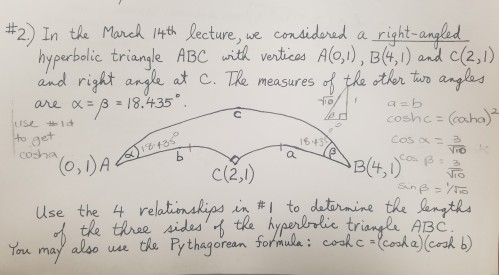 #2.) In the March 14th lecture, we considered a right-angled
hyperbolic triangle ABC with vertices A(0,1), B(4,1) and C(2,1)
and right angle at C. The measures of the other two angles
are α = β = 18.435°.
use #1d
to get
cosha
√10
1
β
3
a = b
cosh c = (cosh a)²
cos α = 3/√10
cos β = 3/√10
sin β = 1/√10
c
(0,1) A
α
18.435°
b
a
18.435°
β
B(4,1)
C(2,1)
Use the 4 relationships in #1 to determine the lengths
of the three sides of the hyperbolic triangle ABC.
You may also use the Pythagorean formula: cosh c = (cosh a)(cosh b)